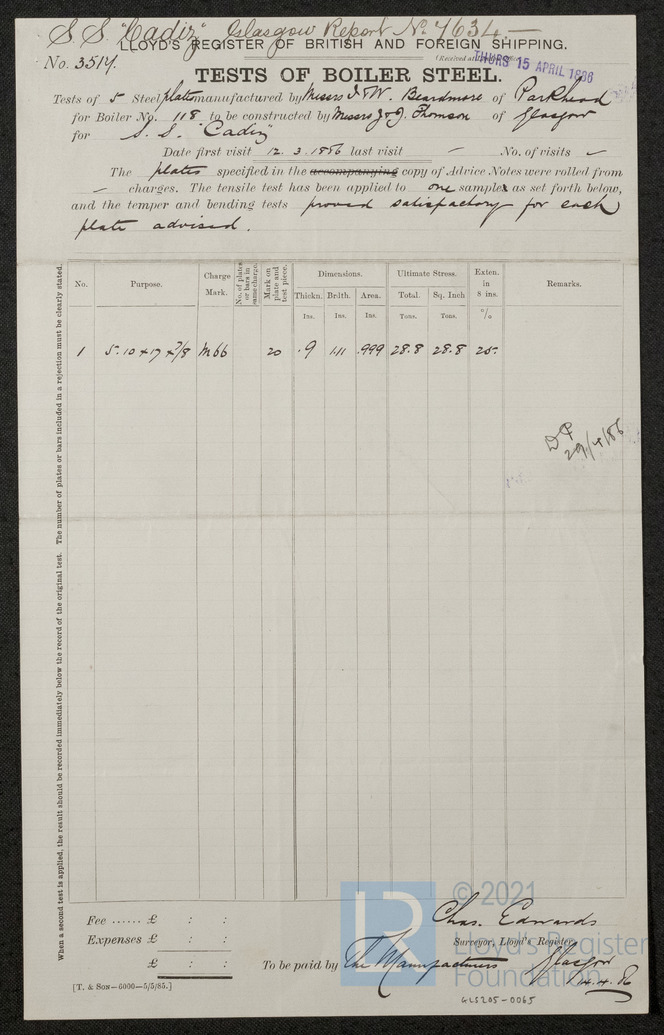 S. S. "Cadiz" Glasgow Report No. 7634 —
LLOYD'S REGISTER OF BRITISH AND FOREIGN SHIPPING.
No. 3514.
THURS 15 APRIL 1886
TESTS OF BOILER STEEL.
Tests of 5 Steel plates manufactured by Messrs J & W. Beardmore of Parkhead
for Boiler No. 118 to be constructed by Messrs J & G. Thomson of Glasgow
for S. S. "Cadiz"
Date first visit 12. 3. 1886 last visit — No. of visits ✓
The plates specified in the accompanying copy of Advice Notes were rolled from
— charges. The tensile test has been applied to one samples as set forth below,
and the temper and bending tests proved satisfactory for each
plate advised.
When a second test is applied, the result should be recorded immediately below the record of the original test. The number of plates or bars included in a rejection must be clearly stated.
No. Purpose. Charge Mark. No. of plates or bars in same charge. Mark on plate and test piece. Dimensions. Ultimate Stress. Exten. in 8 ins. Remarks.
Thickn. Brdth. Area. Total. Sq. Inch
Ins. Ins. Ins. Tons. Tons. %
1 5-10 x 17 x 7/8 M66 20 .9 1.11 .999 28.8 28.8 25.
29/4/86
Fee ...... £ : :
Expenses £ : :
£ : :
Chas. Edwards
Surveyor, Lloyd's Register,
To be paid by The Manufacturers Glasgow
14.4.86
[T. & Son—6000—5/5/85.]
GLS205-0065
© 2021
LR
Lloyd's Register
Foundation